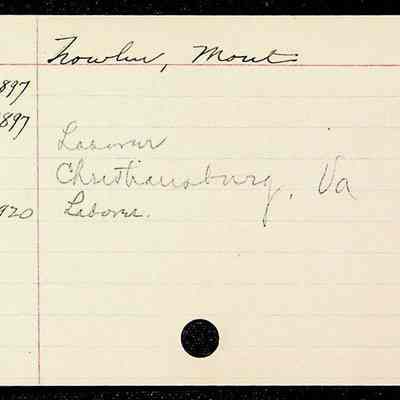 Mont
897
897
Laborer
Christiansburg, Va
920 Laborer.